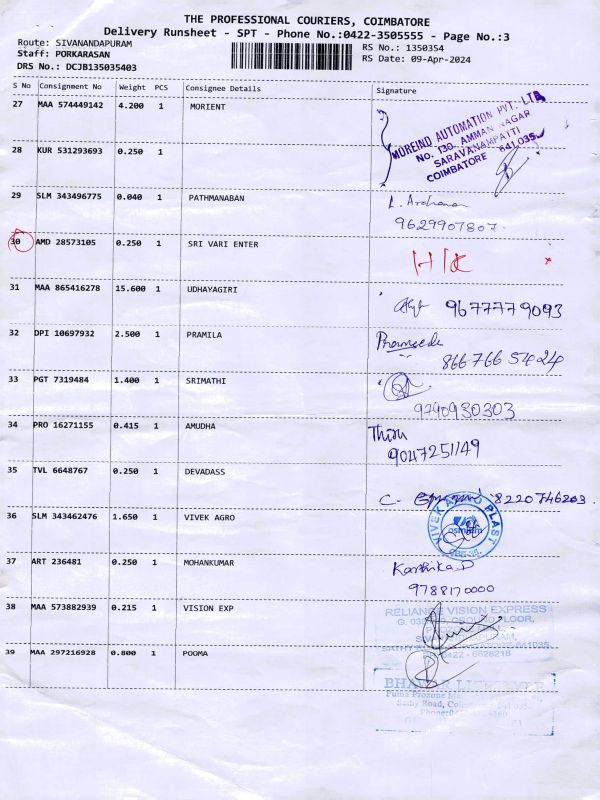 THE PROFESSIONAL COURIERS, COIMBATORE
Delivery Runsheet - SPT - Phone No.:0422-3505555 - Page No.:3
Route: SIVANANDAPURAM
RS No.: 1350354
Staff: PORKARASAN
RS Date: 09-Apr-2024
DRS No.: DCJB135035403
S No Consignment No Weight PCS Consignee Details Signature
27 MAA 574449142 4.200 1 MORIENT
MOREIND AUTOMATION PVT. LTD
No. 130, AMMAN NAGAR
SARAVANAMPATTI
COIMBATORE 641 035
28 KUR 531293693 0.250 1
29 SLM 343496775 0.040 1 PATHMANABAN
9629907807
30 AMD 28573105 0.250 1 SRI VARI ENTER
31 MAA 865416278 15.600 1 UDHAYAGIRI
9677779093
32 DPI 10697932 2.500 1 PRAMILA
8667665424
33 PGT 7319484 1.400 1 SRIMATHI
9790930303
34 PRO 16271155 0.415 1 AMUDHA
9047251149
35 TVL 6648767 0.250 1 DEVADASS
C. 8220746203
36 SLM 343462476 1.650 1 VIVEK AGRO
VIVEK AGRO PLAST
37 ART 236481 0.250 1 MOHANKUMAR
Karthika.D
9788170000
38 MAA 573882939 0.215 1 VISION EXP
RELIANCE VISION EXPRESS
39 MAA 297216928 0.800 1 POOMA